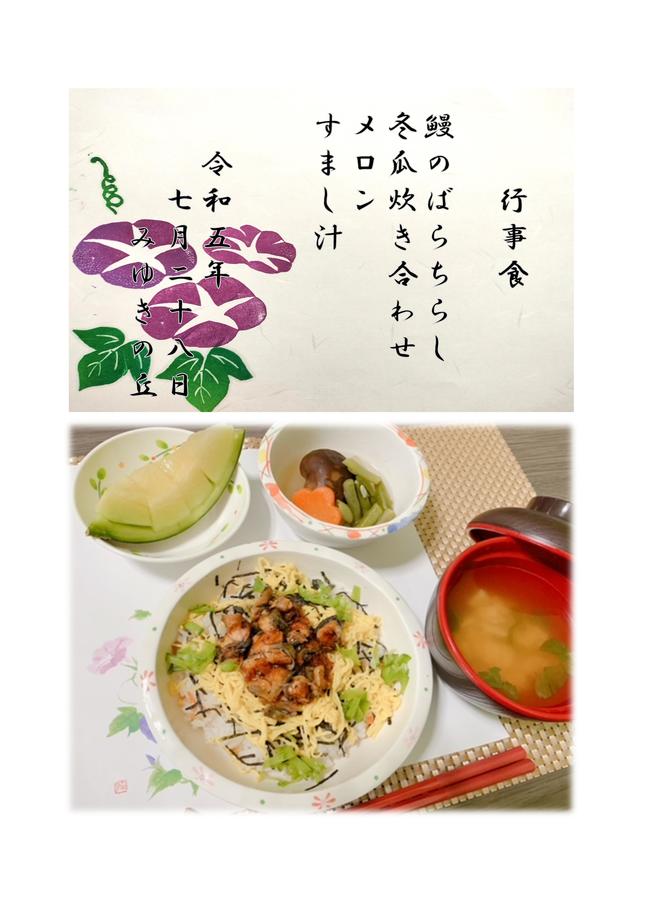 行事食
鰻のばらちらし
冬瓜炊き合わせ
メロン
すまし汁
令和五年
七月二十八日
みゆきの丘